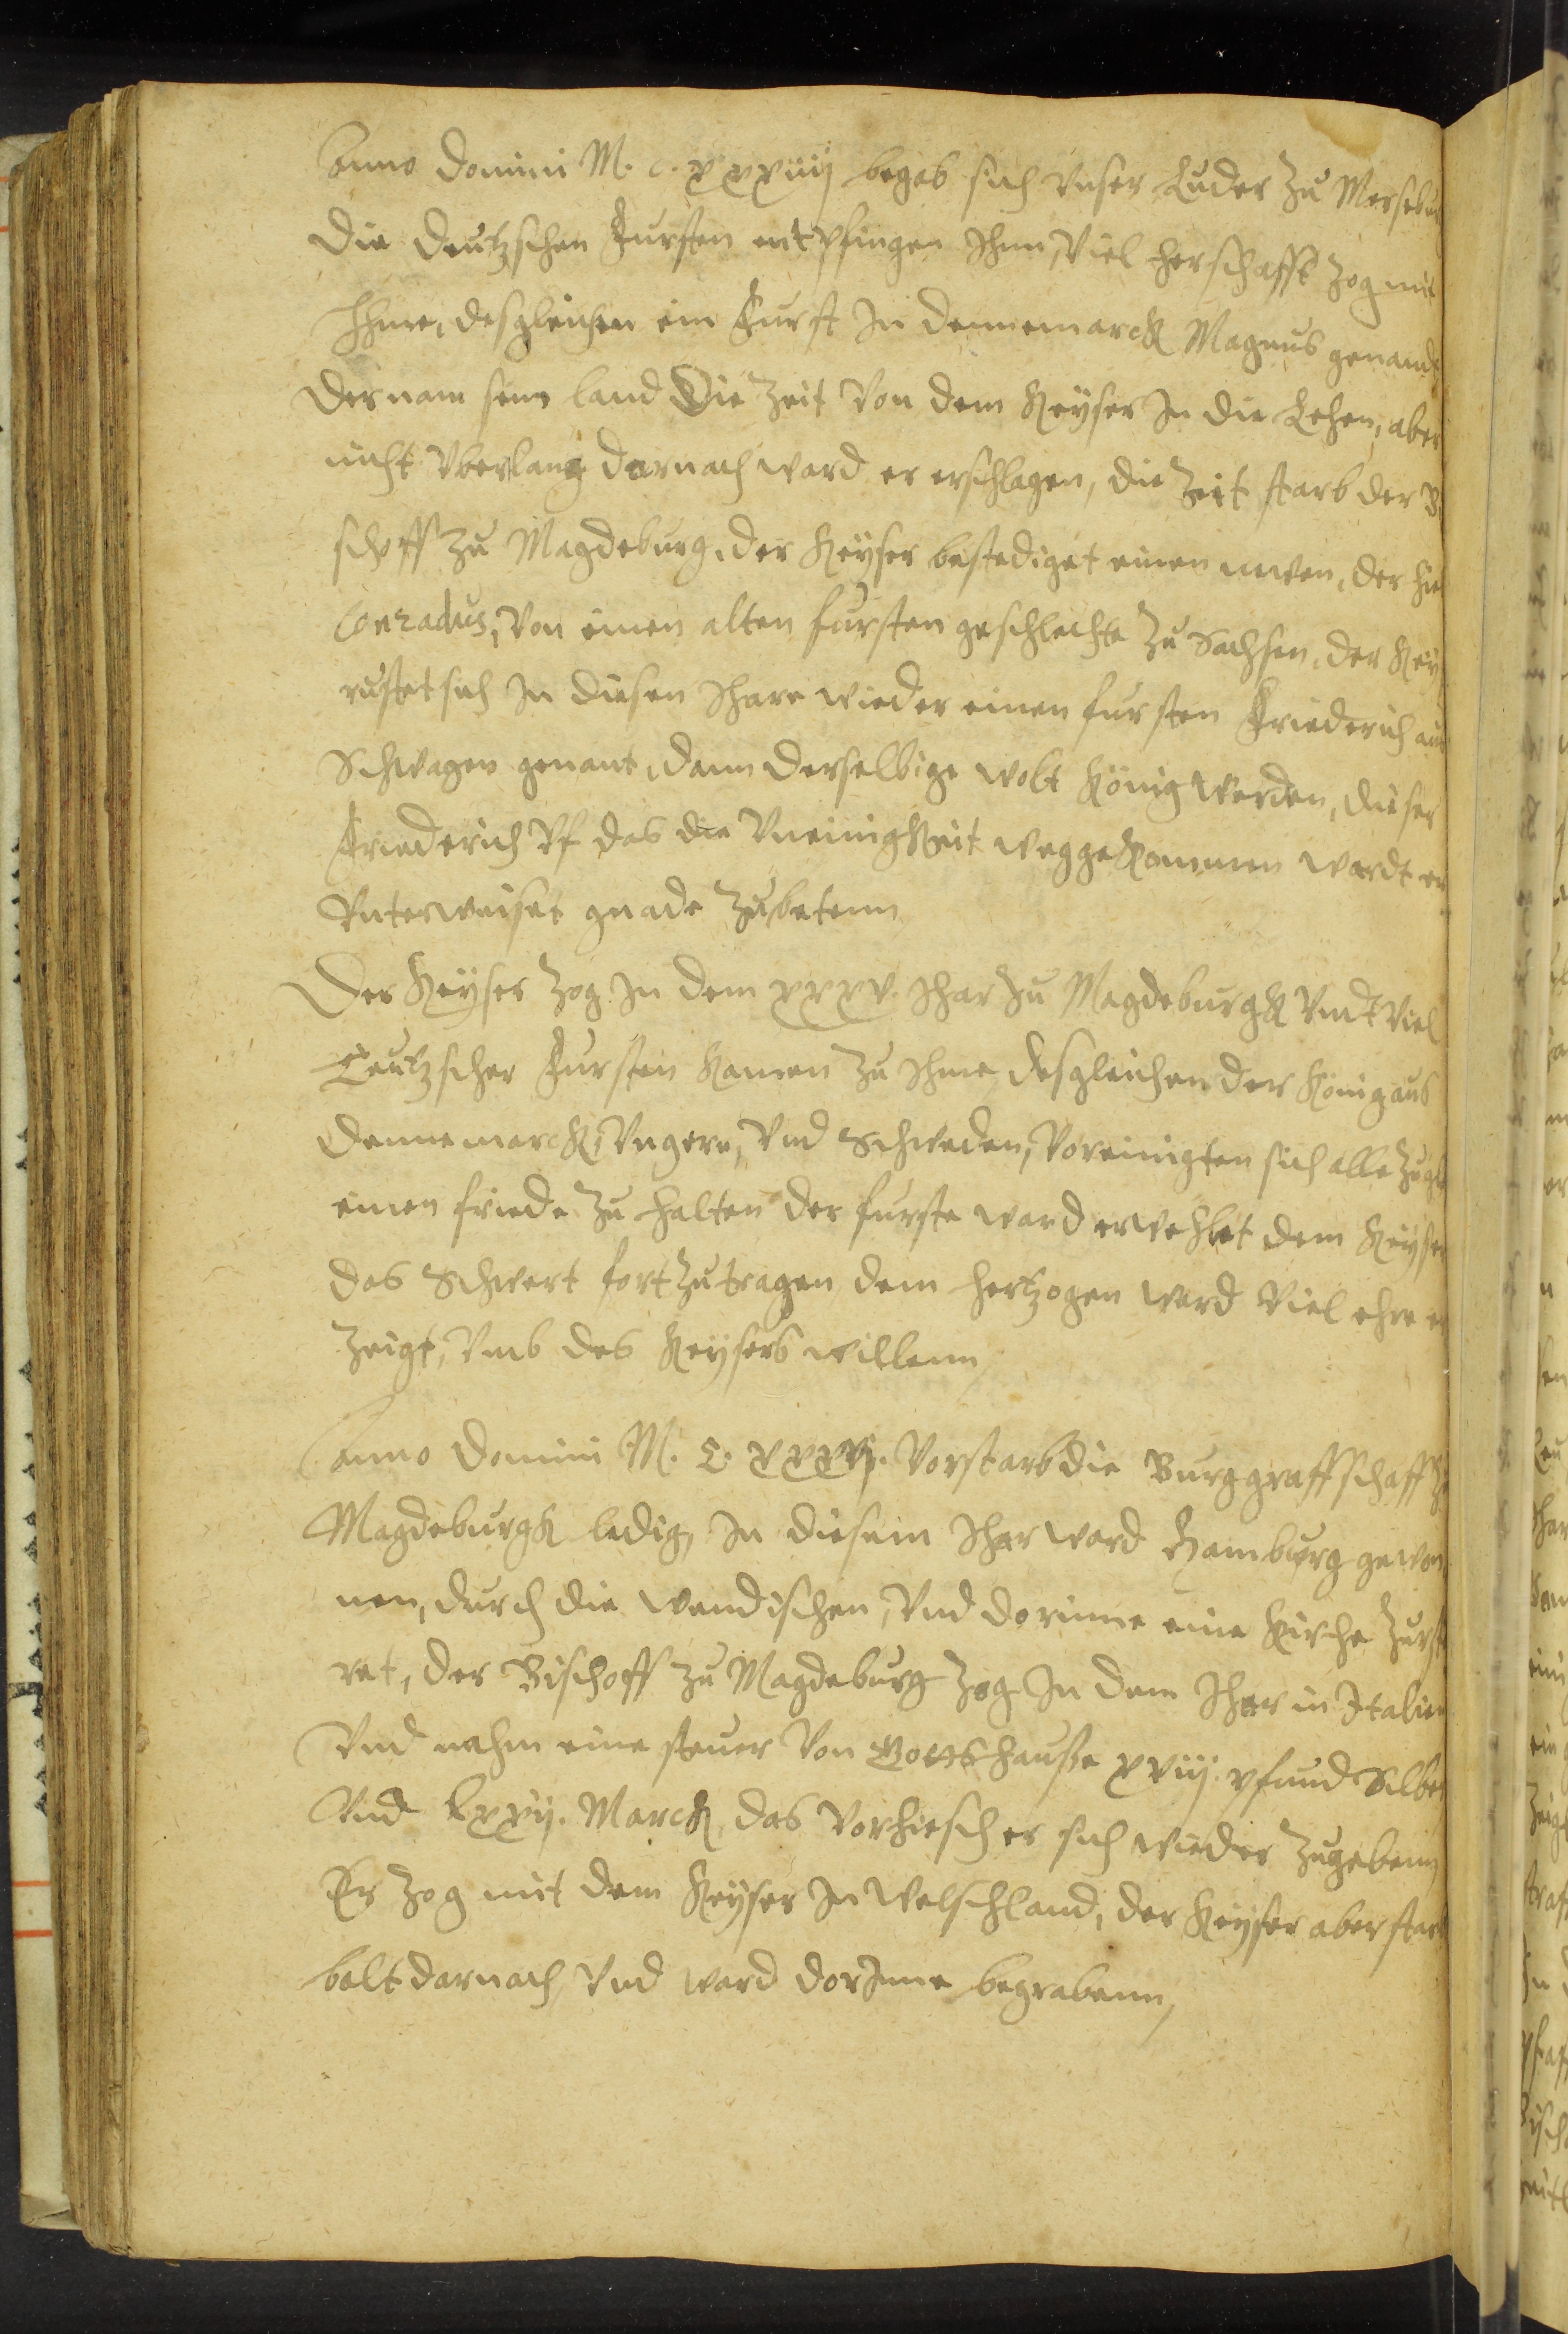 Anno Domini M. c. xxxiiij begab sich vnser Luder zu Mersebu
Die Deutzschen Fursten entpfingen Ihnn, Viel herschafft zog mit
Ihme, desgleichen ein Furst In Dennemarck Magnus genandt
Der nam sein land Die Zeit Von dem Keyser In die Lehen, aber
nicht Vberlang darnach ward er erschlagen, die Zeit starb der B
schoff zu Magdeburg, der Keyser bestediget einen newen, der hie
Conradus, Von einen alten fursten geschlechte zu Sachsen, der Key
rustet sich In diesen Ihare wieder einen fursten Friederich aus
Schwagen genant, dann derselbige wolt König werden, dieser
Friederich Vf das die Vneinigkeit weggekommen wardt er
Vnterweiset gnade zubetenn
Der Keyser zog In dem xxxv. Ihar zu Magdeburgk Vndt Viel
Teutzscher Fursten kamen zu Ihme desgleichen der König aus
Dennemarck, Vngern, Vnd Schweden, Voreinigten sich alle zugle
einen friede zu halten der furste ward erwehlet dem Keyser
das Schwert fort zutragen dem hertzogen ward Viel ehre er
zeigt, Vmb des Keysers willenn,
Anno Domini M. C. xxxvj. Vorstarb die Burggraffschafft zu
Magdeburgk ledig, In diesem Ihar ward Hamburg gewon
nen, durch die wendischen, Vnd dorinne eine Kirche zurst
ret, der Bischoff zu Magdeburg zog In dem Ihar in Italien
Vnd nahm eine steuer Von Gottshause xviij pfund Silber
Vnd lxxij. Marck, das Vorhiesch er sich wieder zugebenn,
Er zog mit dem Keyser In Welschland, der Keyser aber starb
balt darnach, Vnd ward dorInne begrabenn,